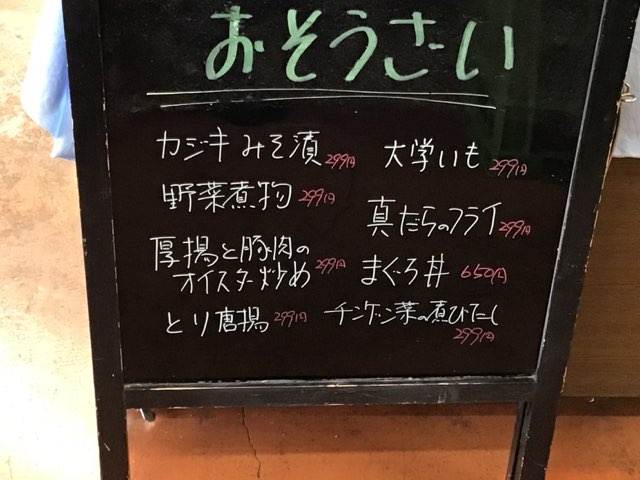 おそうざい
カジキみそ漬 299円
野菜煮物 299円
厚揚と豚肉の
オイスター炒め 299円
とり唐揚 299円
大学いも 299円
真だらのフライ 299円
まぐろ丼 650円
チンゲン菜の煮びたし
299円